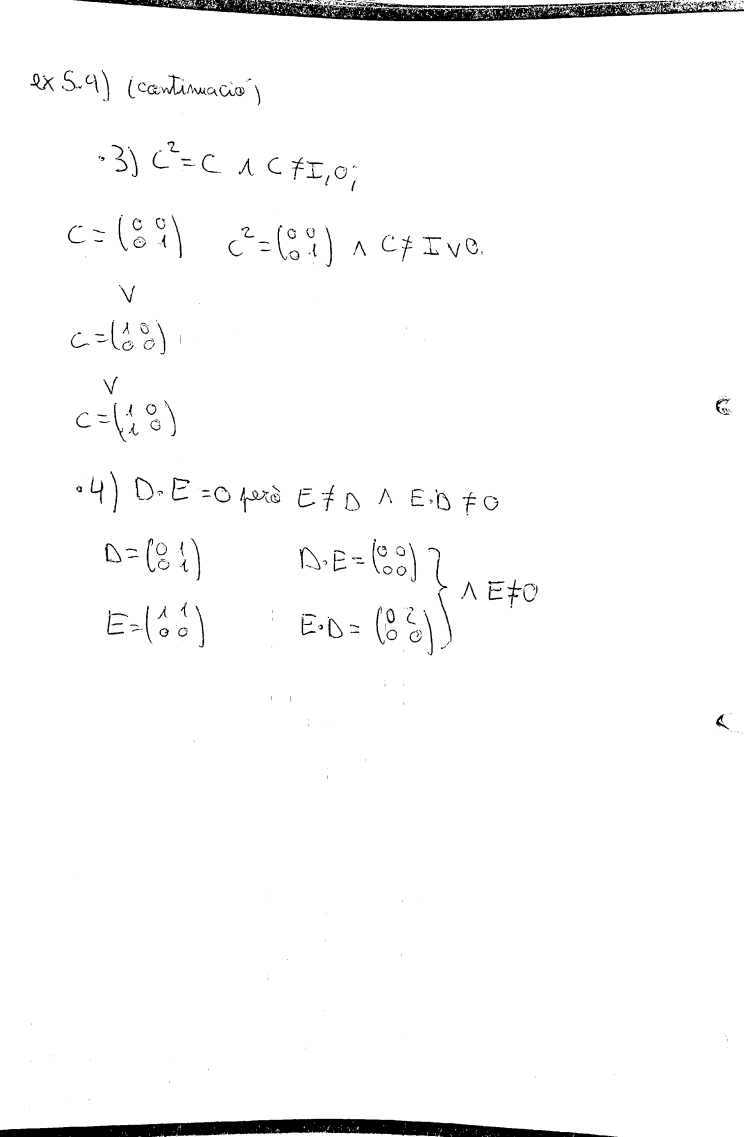 ex 5.9) (continuació)
·3) C²=C ∧ C≠I,0;
C=(0 0
0 1) C²=(0 0
0 1) ∧ C≠I∨0.
∨
C=(1 0
0 0)
∨
C=(1 0
1 0)
·4) D·E=0 però E≠D ∧ E·D≠0
D=(0 1
0 1) D·E=(0 0
0 0)
E=(1 1
0 0) E·D=(0 2
0 0) } ∧ E≠0